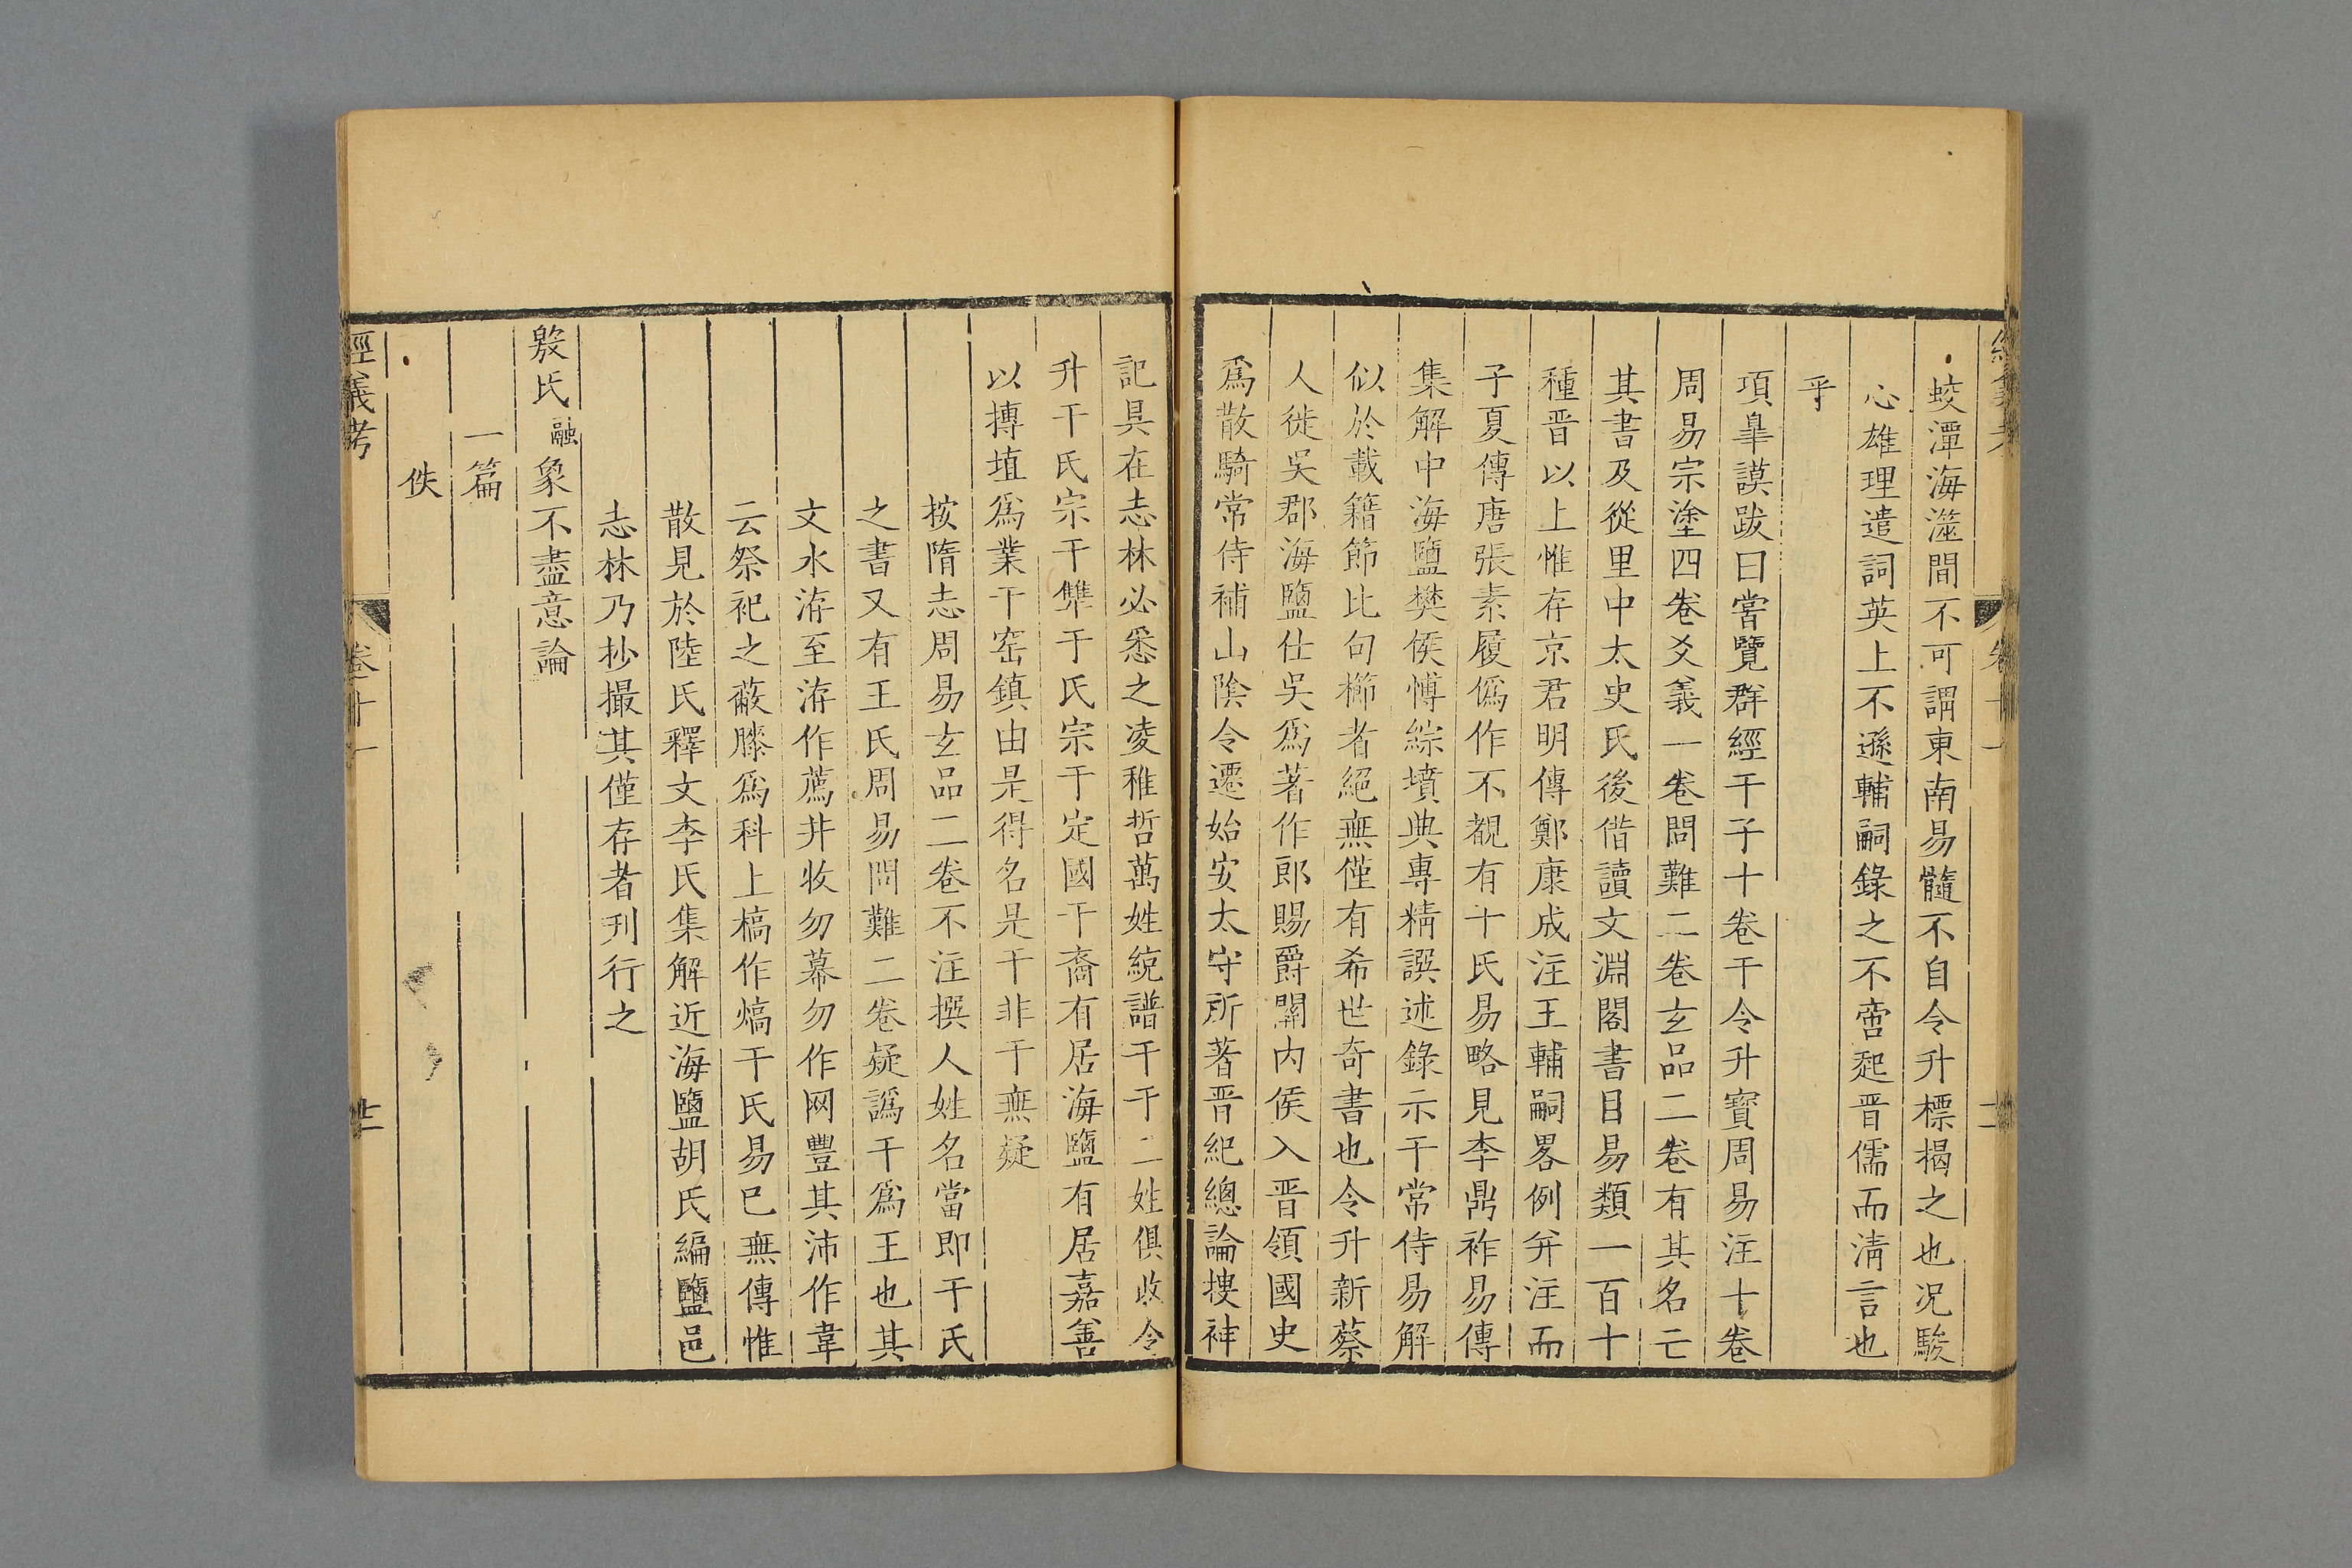 蛟潭海澨間不可謂東南易髓不自令升標揭之也况駿
心雄理遣詞英上不遜輔嗣錄之不啻起晋儒而淸言也
乎
項臯謨跋曰嘗覽群經干子十卷干令升寳周易注十卷
周易宗塗四卷爻義一卷問難二卷玄品二卷有其名亡
其書及從里中太史氏後借讀文淵閣書目易類一百十
種晋以上惟存京君明傳鄭康成注王輔嗣畧例幷注而
子夏傳唐張素履僞作不覩有干氏易略見李鼎祚易傳
集解中海鹽樊侯愽綜墳典專精譔述錄示干常侍易解
似於載籍節比句櫛者絕無僅有希世奇書也令升新蔡
人徙吳郡海鹽仕吳爲著作郎賜爵關內侯入晋領國史
爲散騎常侍補山隂令遷始安太守所著晋紀總論搜神
記具在志林必悉之凌稚哲萬姓統譜干于二姓俱收令
升干氏宗干犨于氏宗于定國干裔有居海鹽有居嘉善
以摶埴爲業干窑鎮由是得名是干非于無疑
按隋志周易玄品二卷不注撰人姓名當即干氏
之書又有王氏周易問難二卷疑譌干爲王也其
文水洊至洊作薦井收勿幕勿作网豐其沛作韋
云祭祀之蔽膝爲科上槁作熇干氏易已無傳惟
散見於陸氏釋文李氏集解近海鹽胡氏編鹽邑
志林乃抄撮其僅存者刋行之
殷氏融象不盡意論
一篇
佚
經義考 卷十一